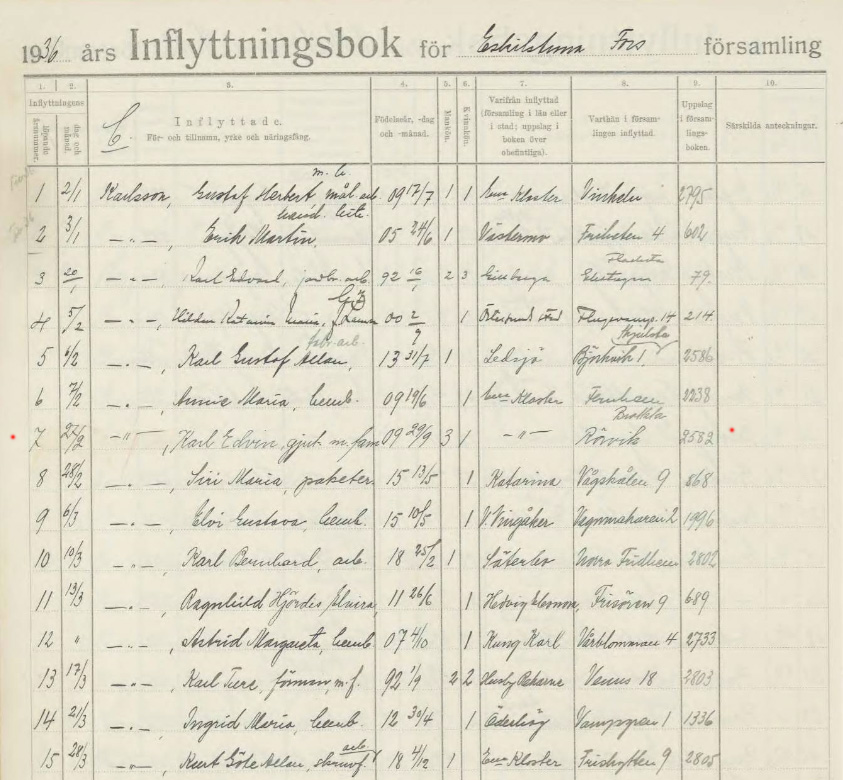 1936 års Inflyttningsbok för Eskilstuna Fors församling
1. 2. 3. 4. 5. 6. 7. 8. 9. 10.
Inflyttningens
löpande årsnummer. dag och månad
C. Inflyttade.
För- och tillnamn, yrke och näringsfång.
Födelseår, -dag och -månad.
Mankön. Kvinnkön.
Varifrån inflyttad (församling i län eller i stad; uppslag i boken över obefintliga).
Varthän i församlingen inflyttad.
Uppslag i församlingsboken.
Särskilda anteckningar.
1 2/1 Karlsson, Gustaf Herbert, mål. arb. 09 17/7 1 1 E-na Kloster Vinkeln 2795
2 3/1 -"-, Erik Martin, 05 24/6 1 Västermo Friheten 4 602
3 20/1 -"-, Karl Edvard, jordbr. arb. 92 16/1 2 3 79.
4 5/2 -"-, Hildur Katarina Maria, 00 2/9 1 214
5 6/2 -"-, Karl Gustaf Allan, 13 31/7 1 Ledsjö 2586
6 7/2 -"-, Annie Maria, hemb. 09 19/6 1 E-na Kloster 2238
7 27/2 -"-, Karl Edvin, gjut. m. fam 09 29/9 3 1 -"- Rörvik 2582
8 28/2 -"-, Siri Maria, paketer. 15 13/5 1 Katarina Vågskålen 9 868
9 6/3 -"-, Elvi Gustava, hemb. 15 10/5 1 V. Vingåker Vagnmakaren 2 1996
10 10/3 -"-, Karl Bernhard, arb. 18 25/2 1 Säterbo Norra Fridhem 2802
11 13/3 -"-, Ragnhild Hjördis Elvira, 11 26/6 1 Hedvig Eleonora, Frisören 9 689
12 " -"-, Astrid Margareta, hemb. 07 4/10 1 Kung Karl Vårblomman 4 2733
13 17/3 -"-, Karl Ture, förman, m. f. 92 1/9 2 2 Husby Rekarne Venus 18 2803
14 21/3 -"-, Ingrid Maria, hemb. 12 30/4 1 Ödeshög 1 1336
15 28/3 -"-, Kurt Göte Allan, 18 4/12 1 E-na Kloster Friskytten 9 2805